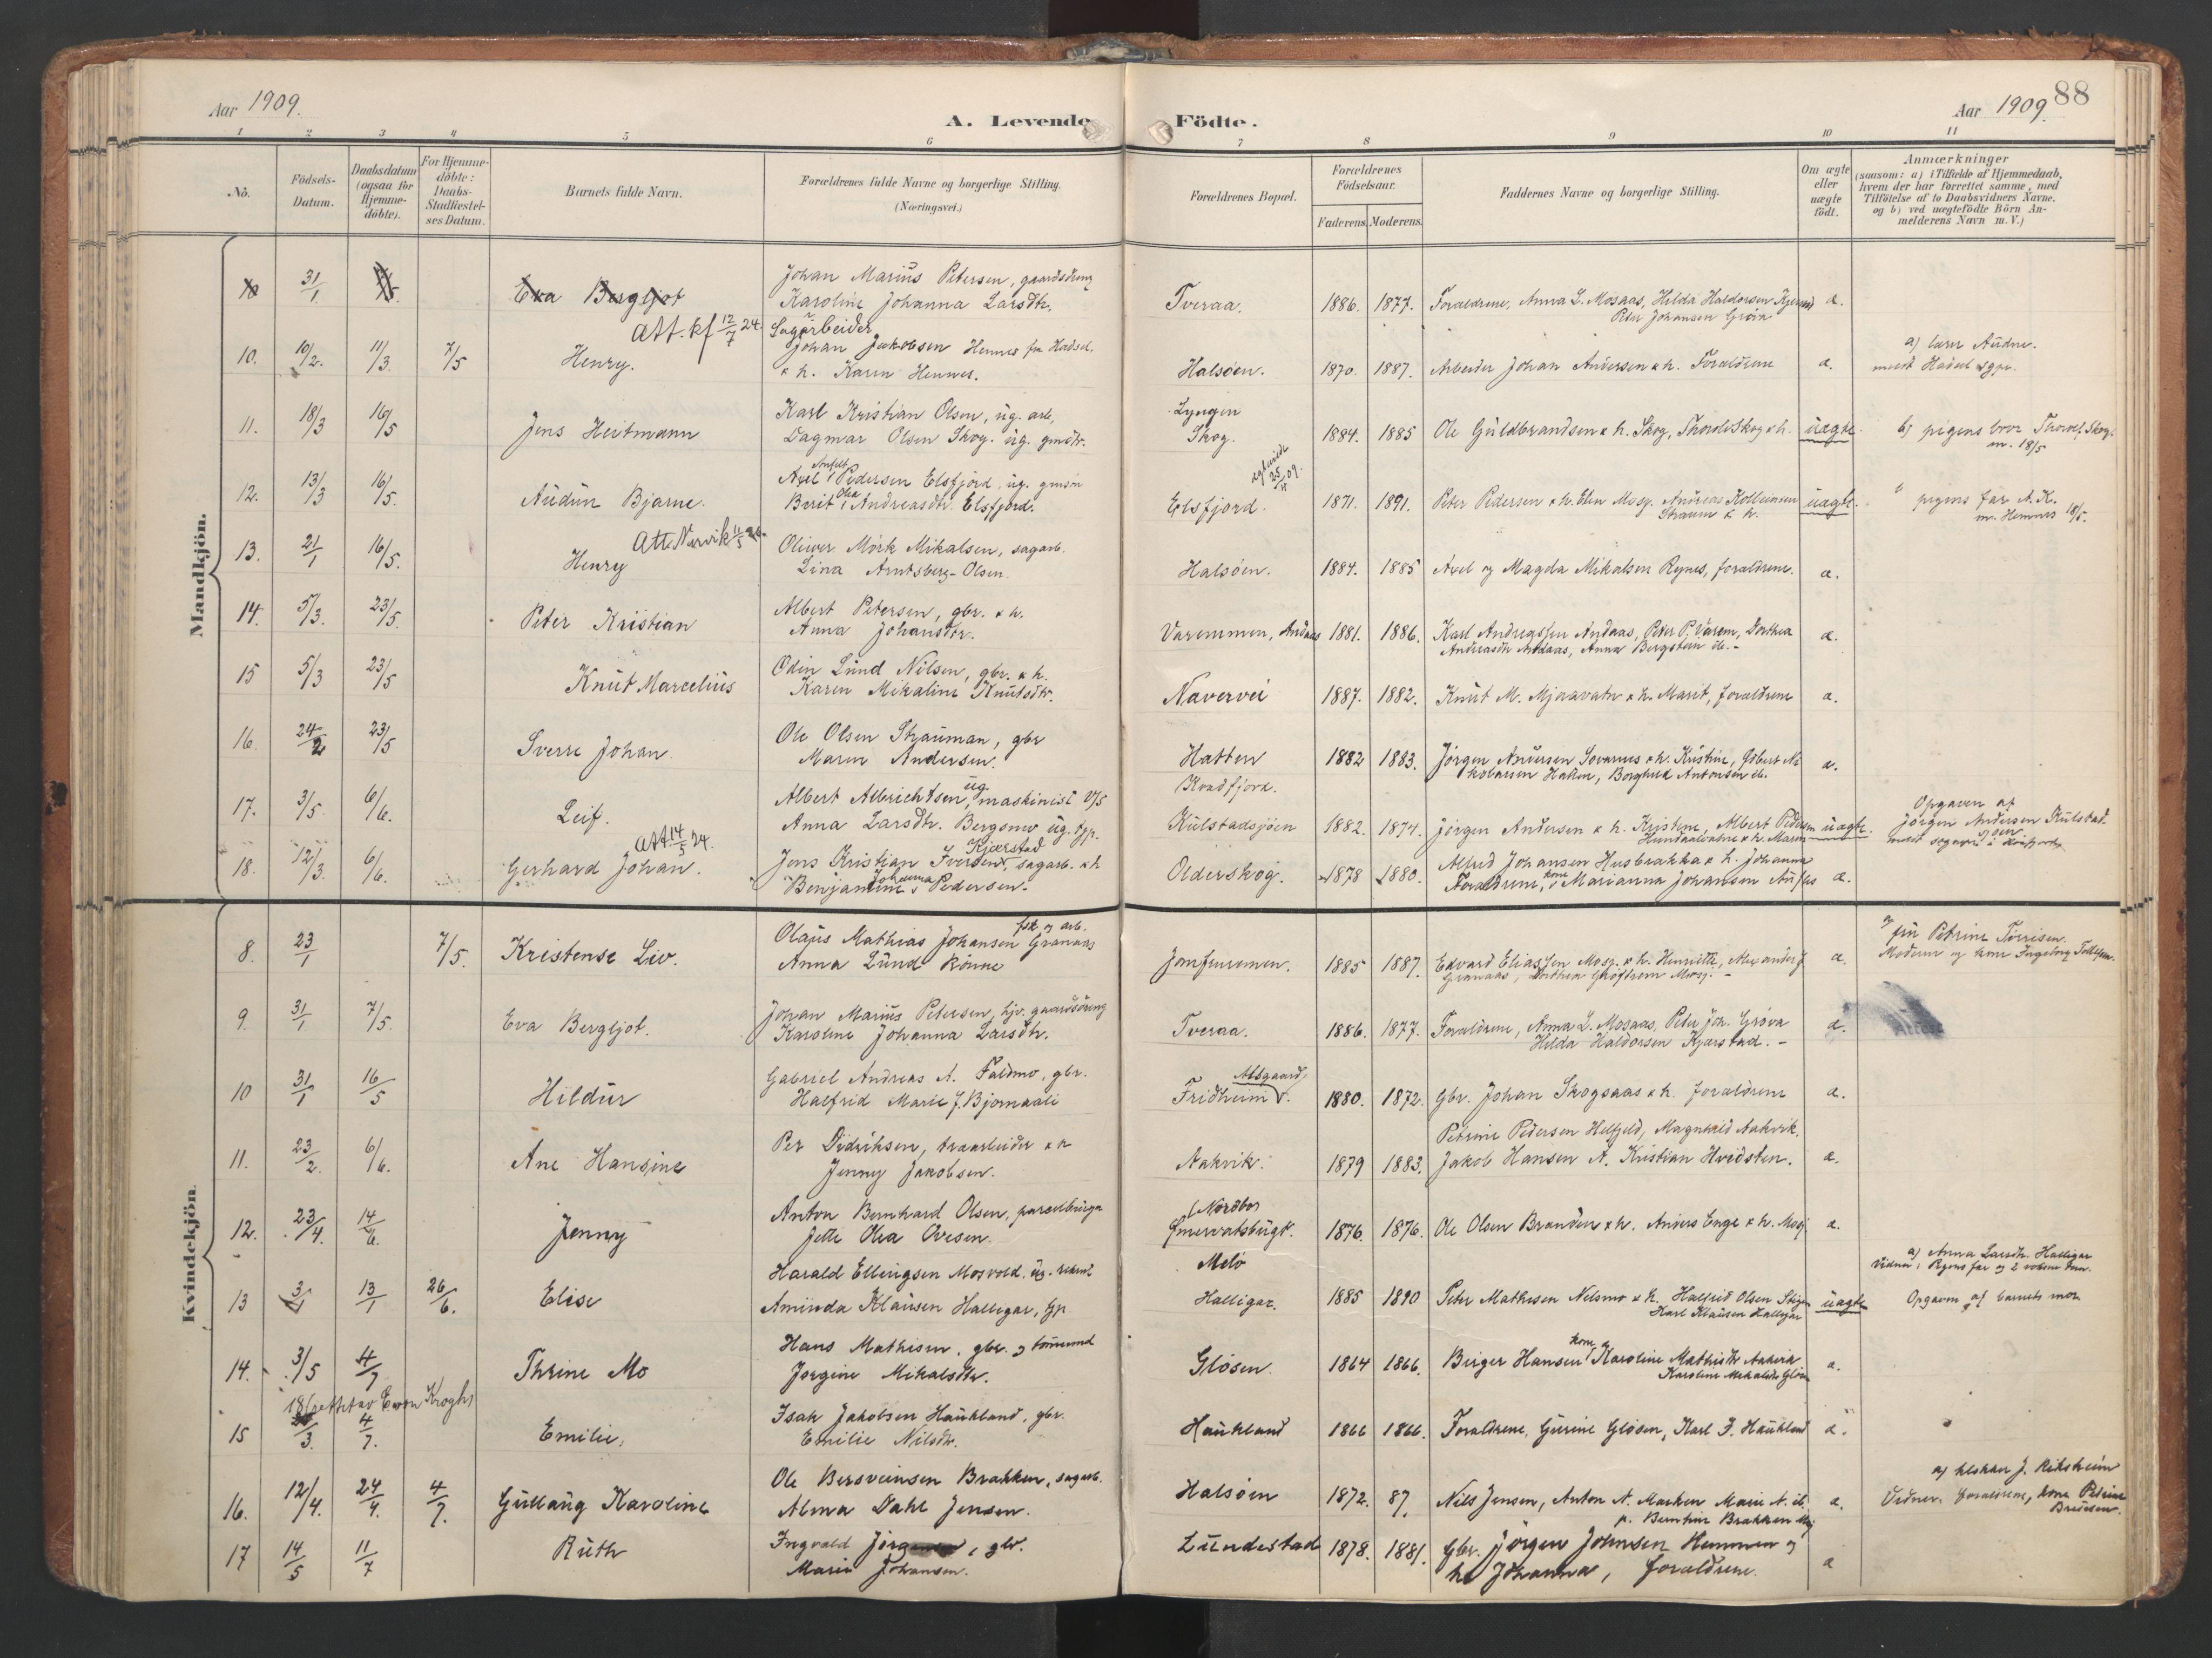 Aar 1909.
A. Levende Födte.
Aar 1909.
88
1 2 3 4 5 6 7 8 9 10 11
No.
Födsels-Datum.
Daabsdatum (ogsaa for Hjemme-döbte).
For Hjemme-döbte: Daabs-Stadfæstel-ses Datum.
Barnets fulde Navn.
Forældrenes fulde Navne og borgerlige Stilling.
(Næringsvei.)
Forældrenes Bopæl.
Forældrenes Födselsaar.
Faderens. Moderens.
Faddernes Navne og borgerlige Stilling.
Om ægte eller uægte födt.
Anmærkninger
(saasom: a) i Tilfælde af Hjemmedaab,
hvem der har forrettet samme, med
Tilföielse af to Daabsvidners Navne.
og b) ved uægtefödte Börn An-
melderens Navn m. V.)
Mandkjön.
10 31/1 Eva Bergljot Johan Marius Petersen, gaardsdreng
Karoline Johanna Larsdtr. Tveraa. 1886. 1877. Forældrene, Anna L. Mosaas, Hilda Haldorsen
Peter Johansen Grøva a.
Att. kf 12/7 24. Sagarbeider
10. 10/2. 11/3. 7/5 Henry. Johan Jakobsen Hennes fra Hadsel.
& h. Karen Hennes. Halsöen. 1870. 1887. Arbeider Johan Andersen & h. Forældrene a. a) lærer Audne.
11. 18/3 16/5 Jens Heitmann Karl Kristian Olsen, ug. arb,
Dagmar Olsen Skog. ug. gmdtr. Lyngen
Skog. 1884. 1885 Ole Guldbrandsen & h. Skog, Thorolv Skog & h. uægte. b) pigens bror Thorolf Skog.
m. 18/5
12. 13/3 16/5. Audun Bjarne. Axel Pedersen Elsfjord, ug. gmsön
Berit Olea Andreasdtr. Elsfjord. Elsfjord. 1871. 1891. Peter Pedersen & h. Elen Mosj. Andreas
Straum & h. uægte. pigens far A. K.
m. Hemnes 18/5.
Att. Narvik
13. 21/1 16/5. Henry Oliver Mörk Mikalsen, sagarb.
Lina Arntsberg-Olsen. Halsöen. 1884. 1885 Axel og Magda Mikalsen Rynes, forældrene. a.
14. 5/3. 23/5. Peter Kristian Albert Petersen, gbr. & h.
Anna Johansdtr. Varemmen, Andaas 1881. 1886. Karl Andreassen Andaas, Peter P. Varem, Dorthea
Andreasdtr Andaas, Anna Bergstein ib.-
a.
15 5/3 23/5 Knut Marcelius Odin Lund Nilsen, gbr. & h.
Karen Mikaline Knutsdtr. Navervei 1887. 1882. Knut M. Mjaavatn & h. Marit, forældrene a.
16. 24/2 23/5 Sverre Johan Ole Olsen Strauman, gbr
Maren Andersen. Hatten 1882 1883. Jörgen Andersen & h. Kristine,
Borghild Antonsen ib. a.
17. 3/5. 6/6. Leif. Albert Albrichtsen, ug. maskinist
Anna Larsdtr. Bergsmo ug. tjp. Kvædfjord.
Kulstadsjöen 1882. 1874. Jörgen Andersen & h. Kristine, Albert Pedersen uægte. Opgaven af
Jörgen Andersen Kulstad
Att. 14/5 24.
18. 12/3. 6/6. Gerhard Johan. Jens Kristian Iversen Kjærstad, sagarb. & h
Benjamine Johanna Pedersen. Olderskog. 1878 1880. Alfred Johansen Husbrakka & h. Johanna
Forældrene, kone Marianna Johansen a.
Kvindekjön.
8. 23/1 7/5. Kristense Liv. Olaus Mathias Johansen Granaas fsk og arb.
Anna Lund Rönne Jomfruremmen. 1885 1887. Edvard Eliassen Mosj. & h. Henriette, Alexander J
Granaas, Mosj.- a. a) fru Petrine Torrisen.
Moderen og kone Ingeborg Tollefsen.
9. 31/1 7/5. Eva Bergljot. Johan Marius Petersen, hjv. gaardsdreng
Karoline Johanna Larsdtr. Tveraa. 1886. 1877. Forældrene, Anna L. Mosaas, Peter Joh. Gröva
Hilda Haldorsen Kjærstad.- a.
10 31/1 16/5 Hildur Gabriel Andreas A. Faldmo, gbr.
Halfrid Marie J. Bjornaali Alsgaard,
Fridheim 1880. 1872. Gbr. Johan Skogsaas & h. forældrene a.
11. 23/2. 6/6. Ane Hansine Per Didriksen, træarbeider & h
Jenny Jakobsen. Aakvik. 1879 1883. Petrine Pedersen Helfjeld, Magnhild Aakvik.
Jakob Hansen A. Kristian Hvidsten. a.
12. 23/4. 14/6. Jenny Anton Bernhard Olsen, parcelbruger
Jette Olea Ovesen. Nordbos
1876. 1876. Ole Olsen Branden & h. Anders Enge & h. Mosj a.
13 3/1 13/1 26/6. Elise Harald Ellingsen Mosvold, ug.
Aminda Klausen Halligar, tjp Melö
Halligar. 1885 1890 Peter Mathesen Nilsmo & h. Halfrid Olsen
Karl Klausen Halligar uægte a) Anna Larsdtr. Halligar
Vidner: Pigens far og 2 voksne
Opgaven af barnets mor
14. 3/5 4/7 Thrine Mo Hans Mathisen, gbr. og tömmermd
Jörgine Mikalsdtr. Glösen. 1864 1866. Birger Hansen kone og Karoline Mathisdtr Aakvik
Karoline Mikalsdtr Glösen a.
18 (rettet av E von Krogh)
15 3. 4/7. Emilie. Isak Jakobsen Haukland, gbr.
Emilie Nilsdtr. Haukland 1866 1866. Forældrene, Gurine Glösen, Karl I. Haukland a.
16. 12/4. 24/4. 4/7. Gullaug Karoline Ole Bersveinsen Brakken, sagarb.
Alma Dahl Jensen. Halsöen 1872. 87. Nils Jensen, Anton A. Marken Marie N. ib.
p. Brakken Mosj a. a) J. Riksheim
Vidner: forældrene, kone Petrine
17 14/5 11/7 Ruth Ingvald, gbr.
Marie Johansen. Lundestad 1878. 1881. Gbr. Jörgen Johnsen Hemmen og
h. Johanna, forældrene. a